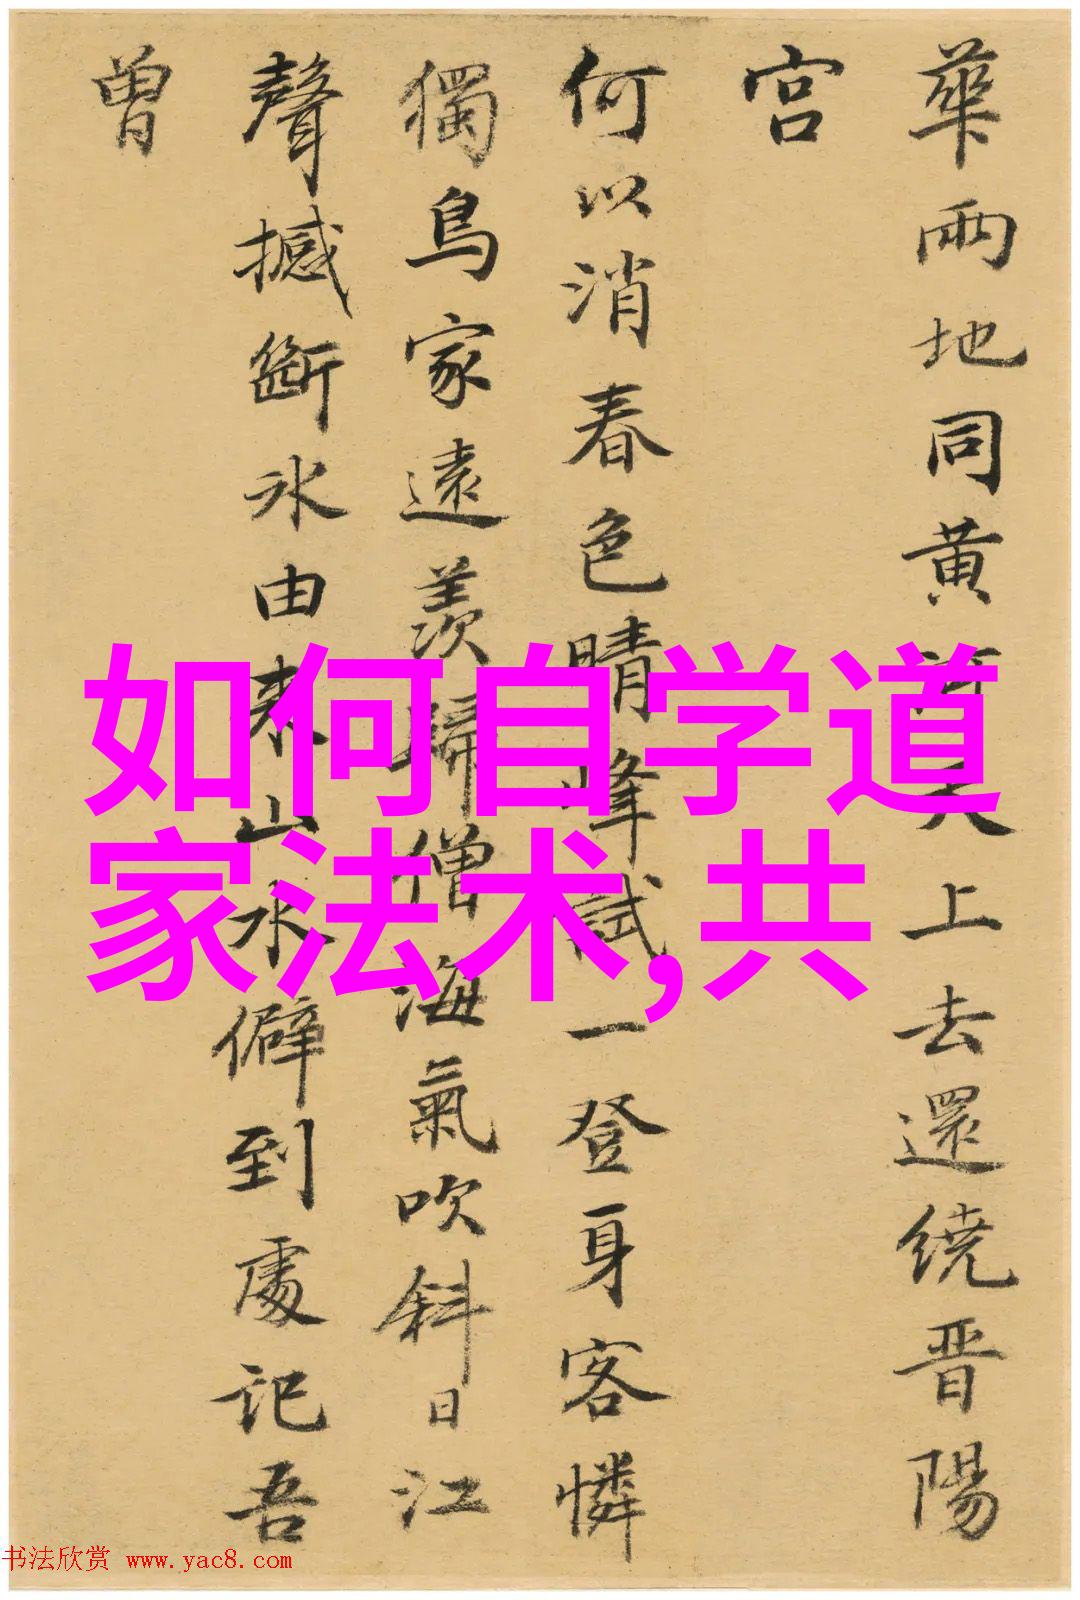 華兩地同黄河天上去還繞晋陽
宫
何以消春色晴峰試一登身客憐
獨鳥家遠羨歸僧海氣吹斜日江
聲撼斷冰由来山水僻到處記吾
曾
如何自学道
家法术,共
书法欣赏 www.yac8.com